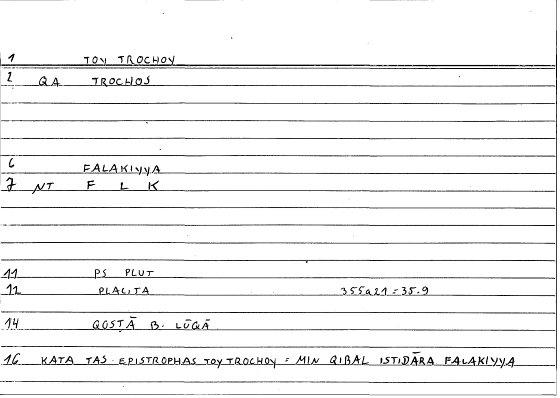 1 TOY TROCHOY
2 QA TROCHOS
6 FALAKIYYA
7 NT F L K
11 PS PLUT
12 PLACITA 355a21=35.9
14 QOSṬĀ B. LŪQĀ
16 KATA TAS EPISTROPHAS TOY TROCHOY = MIN QIBAL ISTIDĀRA FALAKIYYA